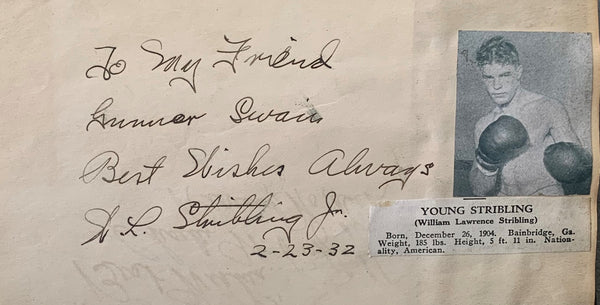 To My Friend
Gunner Swain
Best Wishes Always
W. L. Stribling Jr.
2-23-32
YOUNG STRIBLING
(William Lawrence Stribling)
Born, December 26, 1904. Bainbridge, Ga.
Weight, 185 lbs. Height, 5 ft. 11 in. Nation-
ality, American.